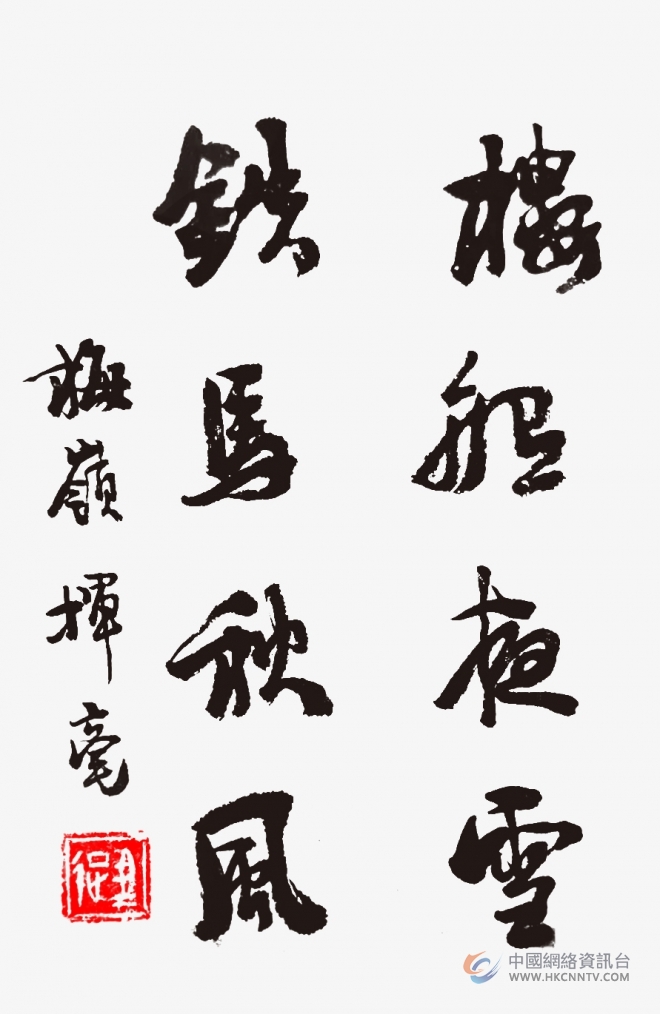 樓船夜雪
鉄馬秋風
梅嶺揮毫
中國網絡資訊台
WWW.HKCNNTV.COM